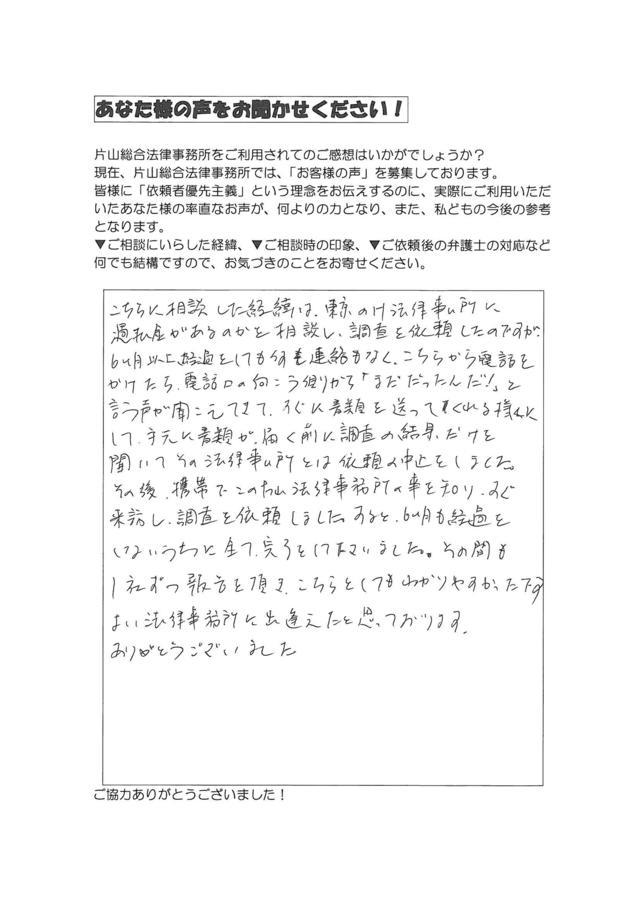 あなた様の声をお聞かせください！
片山総合法律事務所をご利用されてのご感想はいかがでしょうか？
現在、片山総合法律事務所では、「お客様の声」を募集しております。
皆様に「依頼者優先主義」という理念をお伝えするのに、実際にご利用いただ
いたあなた様の率直なお声が、何よりの力となり、また、私どもの今後の参考
となります。
▼ご相談にいらした経緯、▼ご相談時の印象、▼ご依頼後の弁護士の対応など
何でも結構ですので、お気づきのことをお寄せください。
こちらに相談した経緯は、東京の 法律事ム所に
過払金があるのかを相談し、調査を依頼したのですが、
6ヶ月以上経過をしても何も連絡もなく、こちらから電話を
かけたら、電話口の向こう側から「まだだったんだ!」と
言う声が聞こえてきて、すぐに書類を送ってくれる様に
して、手元に書類が届く前に調査の結果だけを
聞いてその法律事ム所とは依頼の中止をしました。
その後、携帯でこの 法律事務所の事を知り、すぐ
来訪し、調査を依頼しました。すると、6ヶ月も経過を
しないうちに全て完了をして下さいました。その間も
1社ずつ報告を頂き、こちらとしてもわかりやすかったです
よい法律事務所に出逢えたと思っております。
ありがとうございました
ご協力ありがとうございました！